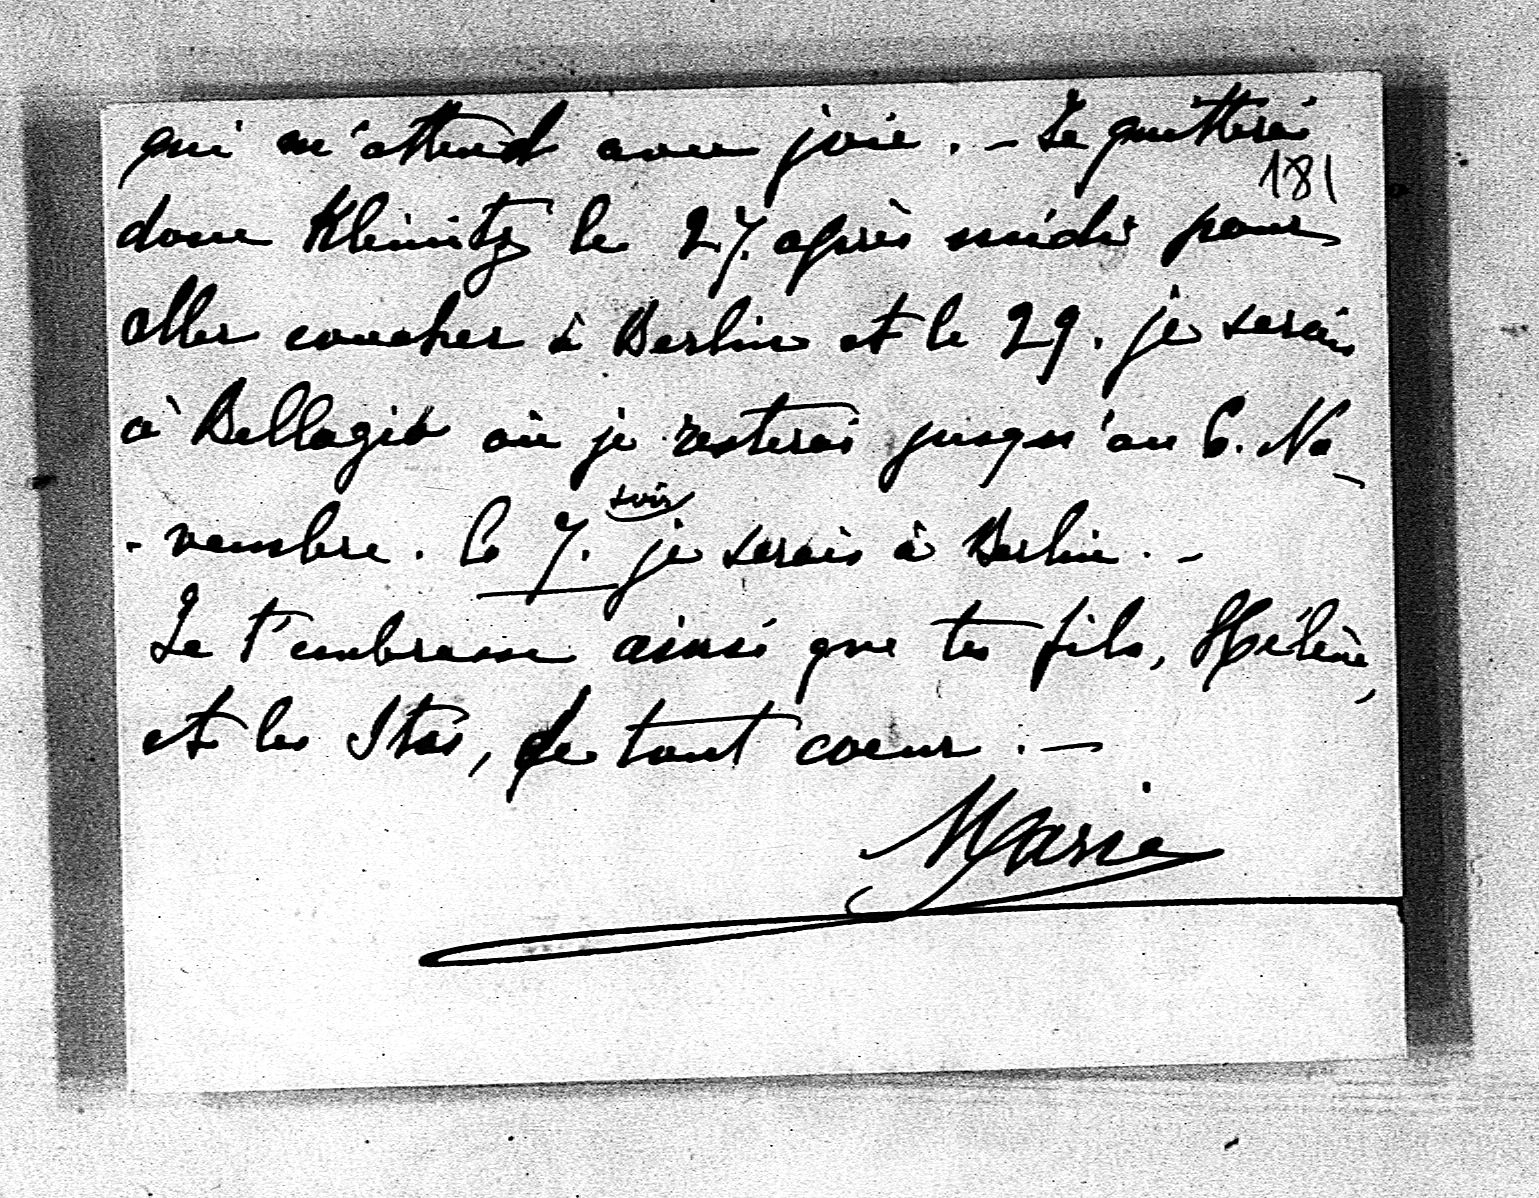 qui m'attend avec joie. — Je quitterai
181
donc Kleinitz le 27. après midi pour
aller coucher à Berlin et le 29. je serai
à Bellagio où je resterai jusqu'au 6. No-
-vembre. le 7. soir je serais à Berlin. —
Je t'embrasse ainsi que tes fils, Hélène,
et les Stas, de tout coeur. —
Marie